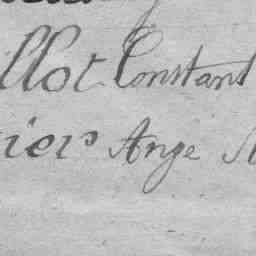 llot Constant
iers Ange